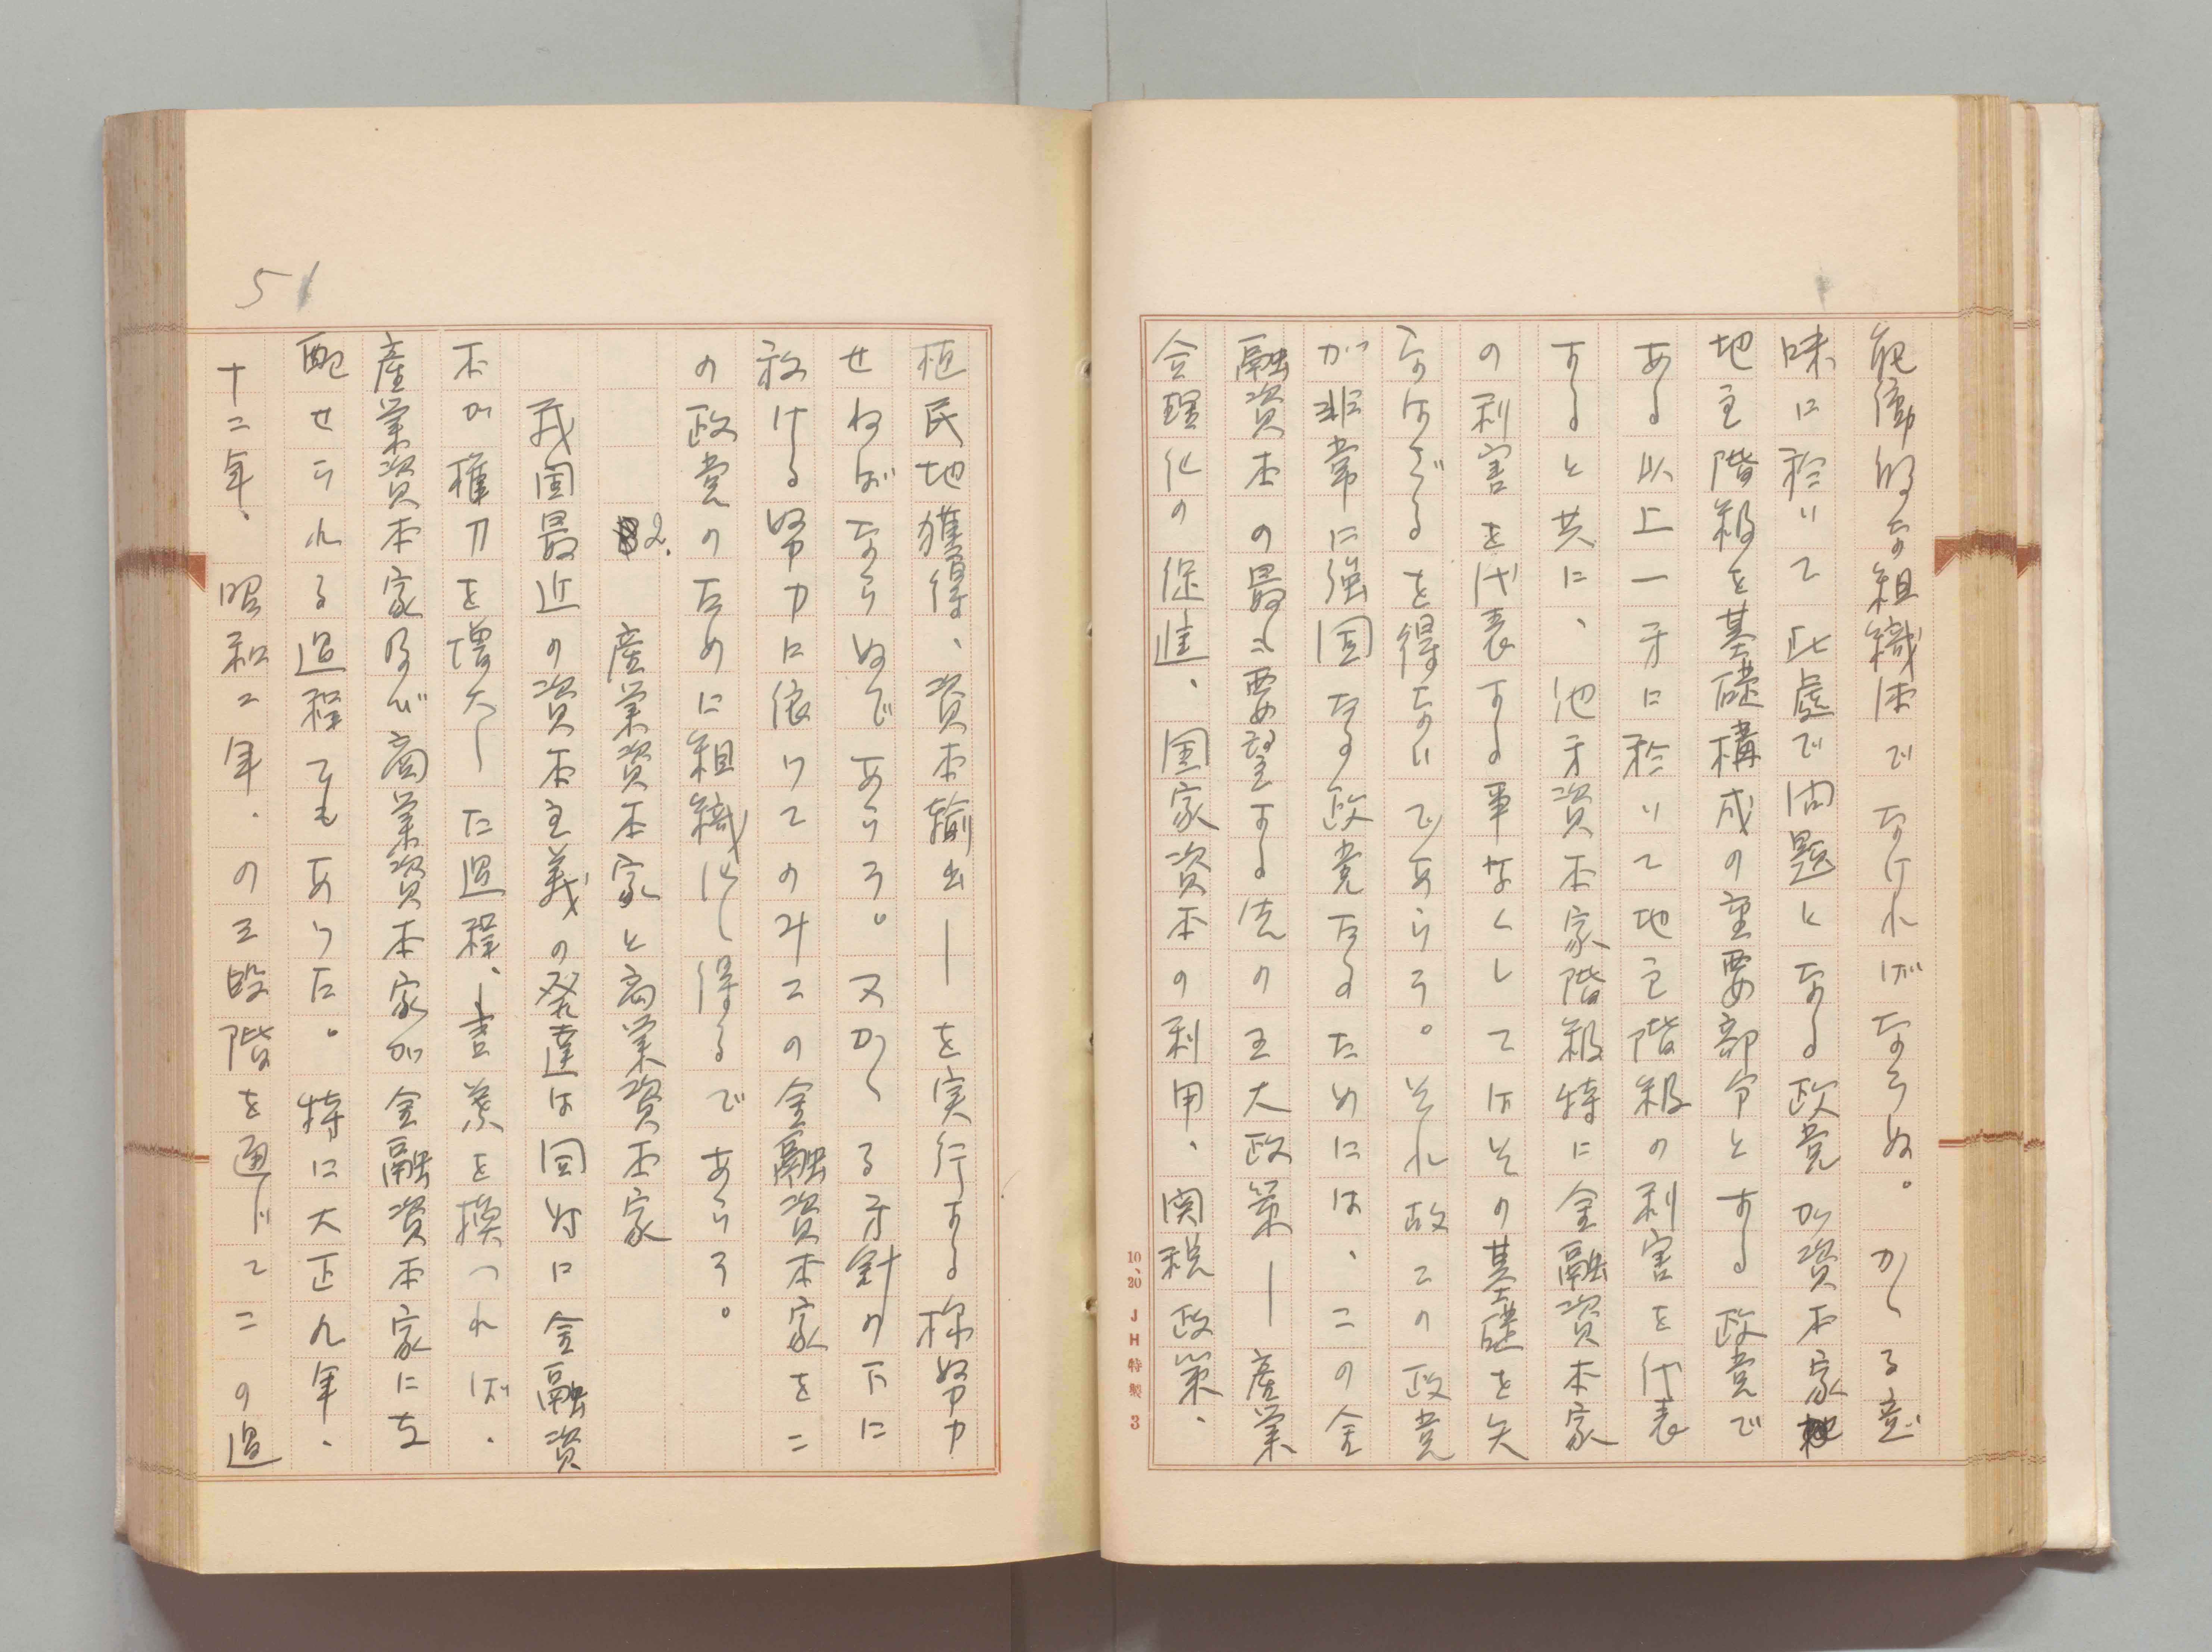 能衛的な組織体でなければならぬ。かゝる意
味に於いて此處で問題となる政党が資本家
地主階級を基礎構成の重要部分とする政党で
ある以上一方に於いて地主階級の利害を代表
すると共に、他方資本家階級特に金融資本家
の利害を代表する事なくしてはその基礎を失
なはざるを得ないであらう。それ故この政党
が非常に強固なる政党たるためには、この金
融資本の最も要望する先の五大政策―産業
合理化の促進、国家資本の利用、関税政策、
10、20 JH特製 3
植民地獲得、資本輸出―を実行する様努力
せねばならぬであらう。又かゝる方針の下に
於ける努力に依ってのみこの金融資本家をこ
の政党のために組織化し得るであらう。
2. 産業資本家と商業資本家
我国最近の資本主義の発達は同時に金融資
本が権力を増大した過程、言葉を換つれば、
産業資本家及び商業資本家が金融資本家に支
配せられる過程でもあつた。特に大正九年、
十二年、昭和二年、の三段階を通じてこの過
51